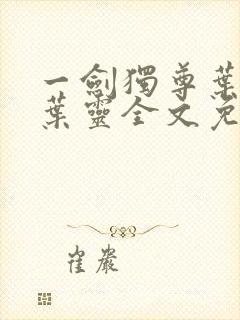 一劍獨尊葉
葉靈全文免
崔巖